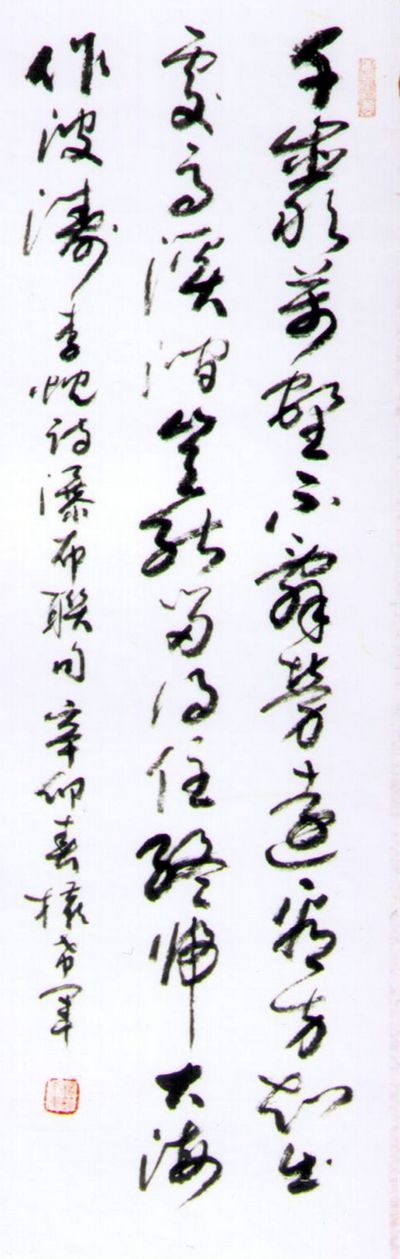 千巖萬壑不辭勞遠看方知出
處高溪澗豈能留得住終歸大海
作波濤 李忱詩瀑布聯句 辛卯春 權希軍